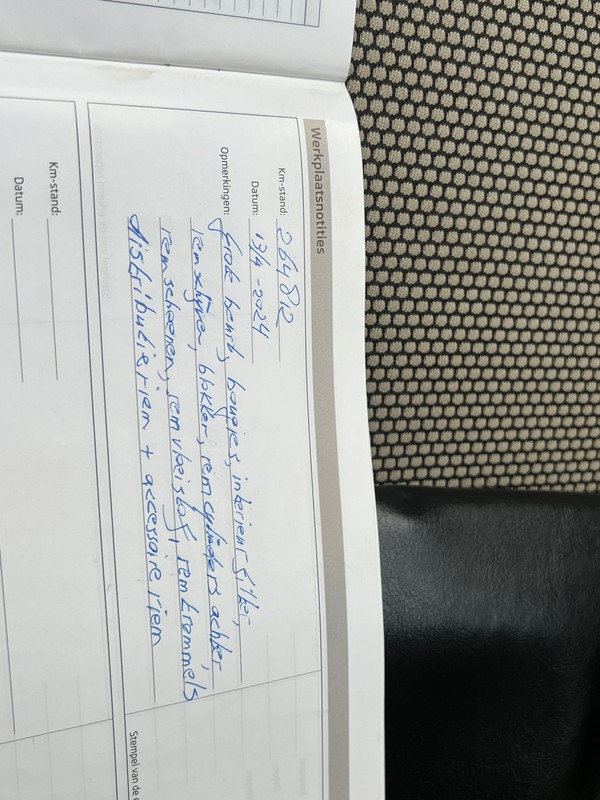 Werkplaatsnotities
Km-stand: 264812
Datum: 13/4-2024
Opmerkingen: grote beurt, bougies, interieurfilter,
remschijven, blokken, remcylinders achter,
remschoenen, remvloeistof, remtrommels
distributieriem + accessoireriem
Stempel van de
Km-stand:
Datum: